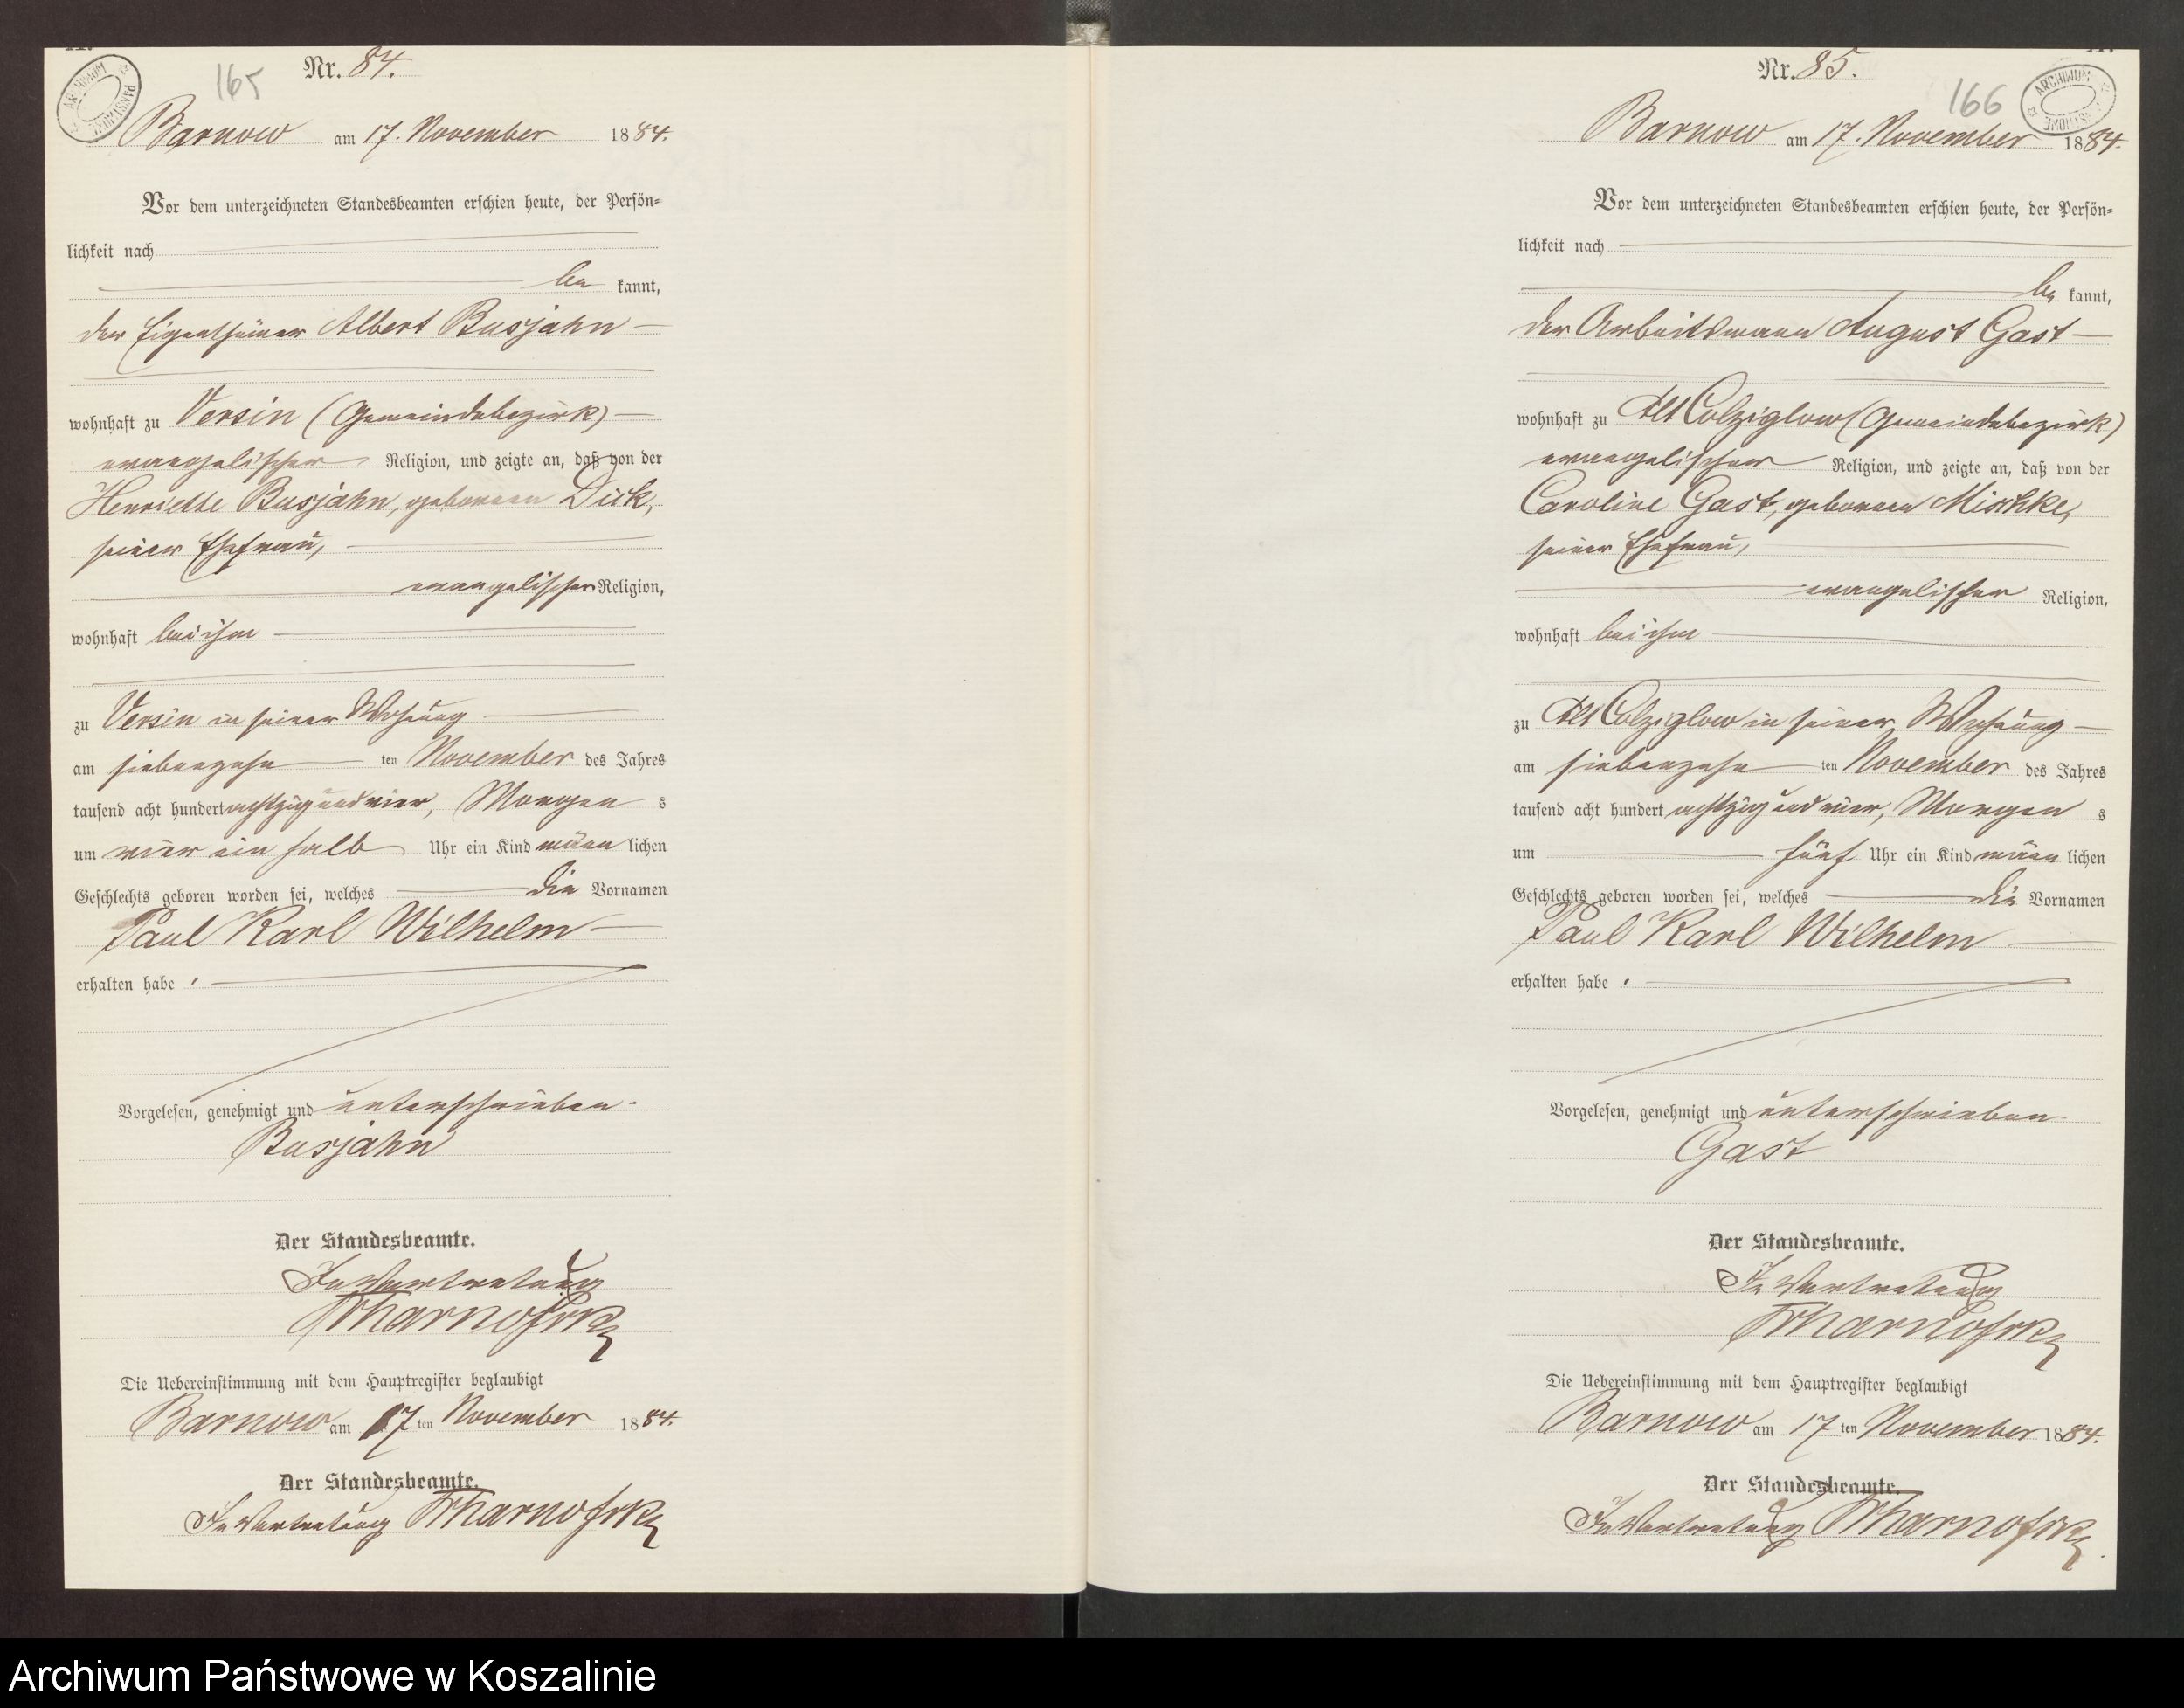 165
Nr. 84.
Barnow am 17. November 1884.
Vor dem unterzeichneten Standesbeamten erschien heute, der Persön=
lichkeit nach
be kannt,
der Eigenthümer Albert Busjahn
wohnhaft zu Versin (Gemeindebezirk)
evangelischer Religion, und zeigte an, daß von der
Henriette Busjahn, geborenen Dick,
seiner Ehefrau,
evangelischer Religion,
wohnhaft bei ihm
zu Versin in seiner Wohnung
am siebenzehn ten November des Jahres
tausend acht hundert achtzig und vier, Morgen s
um vier ein halb Uhr ein Kind männ lichen
Geschlechts geboren worden sei, welches die Vornamen
Paul Karl Wilhelm
erhalten habe.
Vorgelesen, genehmigt und unterschrieben.
Busjahn
Der Standesbeamte.
In Vertretung
Die Uebereinstimmung mit dem Hauptregister beglaubigt
Barnow am 17 ten November 1884.
Der Standesbeamte.
In Vertretung
Nr. 85.
166
ARCHIWUM
Barnow am 17. November 1884.
Vor dem unterzeichneten Standesbeamten erschien heute, der Persön=
lichkeit nach
be kannt,
der Arbeitsmann August Gast
wohnhaft zu Alt Colziglow (Gemeindebezirk)
evangelischer Religion, und zeigte an, daß von der
Caroline Gast, geborenen Mischke,
seiner Ehefrau,
evangelischer Religion,
wohnhaft bei ihm
zu Alt Colziglow in seiner Wohnung
am siebenzehn ten November des Jahres
tausend acht hundert achtzig und vier, Morgen s
um fünf Uhr ein Kind männ lichen
Geschlechts geboren worden sei, welches die Vornamen
Paul Karl Wilhelm
erhalten habe.
Vorgelesen, genehmigt und unterschrieben
Gast
Der Standesbeamte.
In Vertretung
Die Uebereinstimmung mit dem Hauptregister beglaubigt
Barnow am 17 ten November 1884.
Der Standesbeamte.
In Vertretung
Archiwum Państwowe w Koszalinie